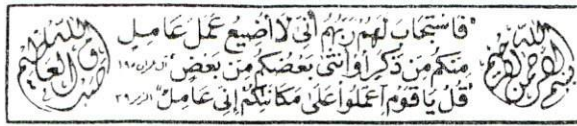 بسم الله الرحمن الرحيم
"فَاسْتَجَابَ لَهُمْ رَبُّهُمْ أَنِّي لَا أُضِيعُ عَمَلَ عَامِلٍ
مِنْكُمْ مِنْ ذَكَرٍ أَوْ أُنْثَى بَعْضُكُمْ مِنْ بَعْضٍ" آل عمران ١٩٥
"قُلْ يَا قَوْمِ اعْمَلُوا عَلَى مَكَانَتِكُمْ إِنِّي عَامِلٌ" الزمر ٣٩
صدق الله العظيم